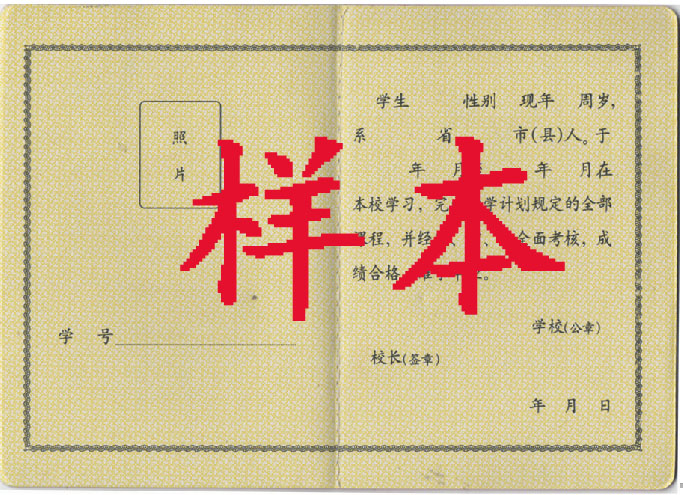 照
片
学 号
学生 性别 现年 周岁,
系 省 市(县)人。于
年 月 年 月在
本校学习, 完 学计划规定的全部
程、并经 、 全面考核, 成
绩合格 准 。
学校(公章)
校长(签章)
年 月 日
样本